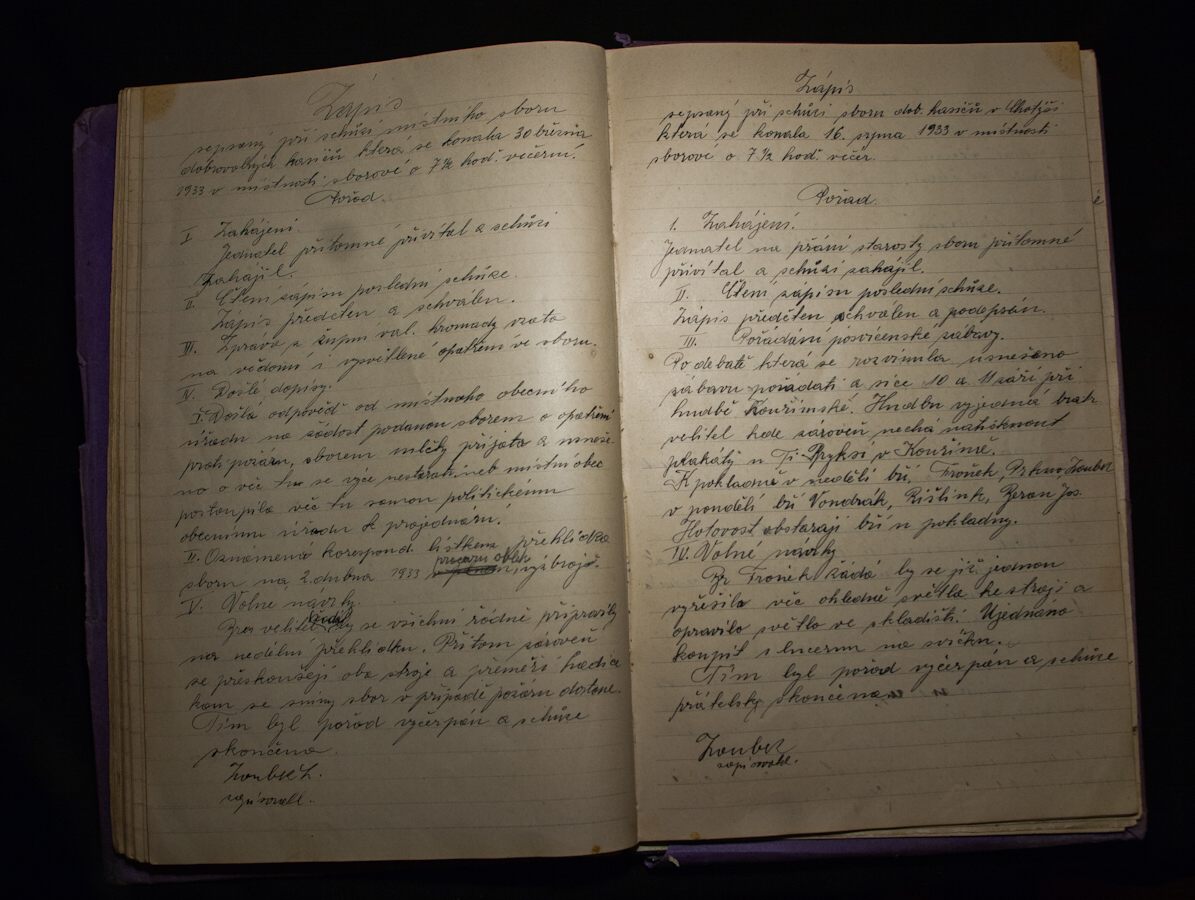 Zápis
sepsaný při schůzi místního sboru
dobrovolných hasičů která se konala 30 března
1933 v místnosti sborové o 7½ hod. večerní.
Pořad.
I Zahájení.
Jednatel přítomné přivítal a schůzi
zahájil.
II. Čtení zápisu poslední schůze.
Zápis předčten a schválen.
III. Zpráva z župní val. hromady vzata
na vědomí i vysvětlené opatření ve sboru.
IV. Došlé dopisy.
I. Došla odpověď od místního obecního
úřadu na žádost podanou sborem o opatření
proti požáru, sborem mlčky přijata a usneše-
no o věc tu se více nestarati neb místní obec
postoupila věc tu samou politickému
obecnímu úřadu k projednání.
II. Oznámená korespond. lístkem přehlídka
sboru na 2. dubna 1933
V. Volné návrhy.
Bra velitel žádá by se všichni řádně připravily
na nedělní přehlídku. Přitom zároveň
se přeskoušejí oba stroje a přeměří hadice
kam se míní sbor v případě požáru dostane.
Tím byl pořad vyčerpán a schůze
skončena.
Zoubek
zapisovatel.
Zápis
sepsaný při schůzi sboru dob. hasičů v Chotýši
která se konala 16. srpna 1933 v místnosti
sborové o 7½ hod. večer.
Pořad.
1. Zahájení.
Jednatel na přání starosty sboru přítomné
přivítal a schůzi zahájil.
II. Čtení zápisu poslední schůze.
Zápis předčten schválen a podepsán.
III. Pořádání posvícenské zábavy.
Po debatě která se rozvinula usnešeno
zábavu pořádati a sice 10 a 11 září při
hudbě Kouřimské. Hudbu vyjedná bratr
velitel kde zároveň nechá natisknout
plakáty u Ti Pryksí v Kouřimě.
K pokladně v neděli bři, Froněk, Zoubek
v pondělí bři Vondrák, Rišlink, Beran Jos.
Hotovost obstarají bři u pokladny.
IV. Volné návrhy
Br Froněk žádá by se již jednou
vyřešila věc ohledně světla ke stroji a
opravilo světlo ve skladišti. Ujednáno
koupit slucernu na svíčku.
Tím byl pořad vyčerpán a schůze
přátelsky skončena
Zoubek
zapisovatel.